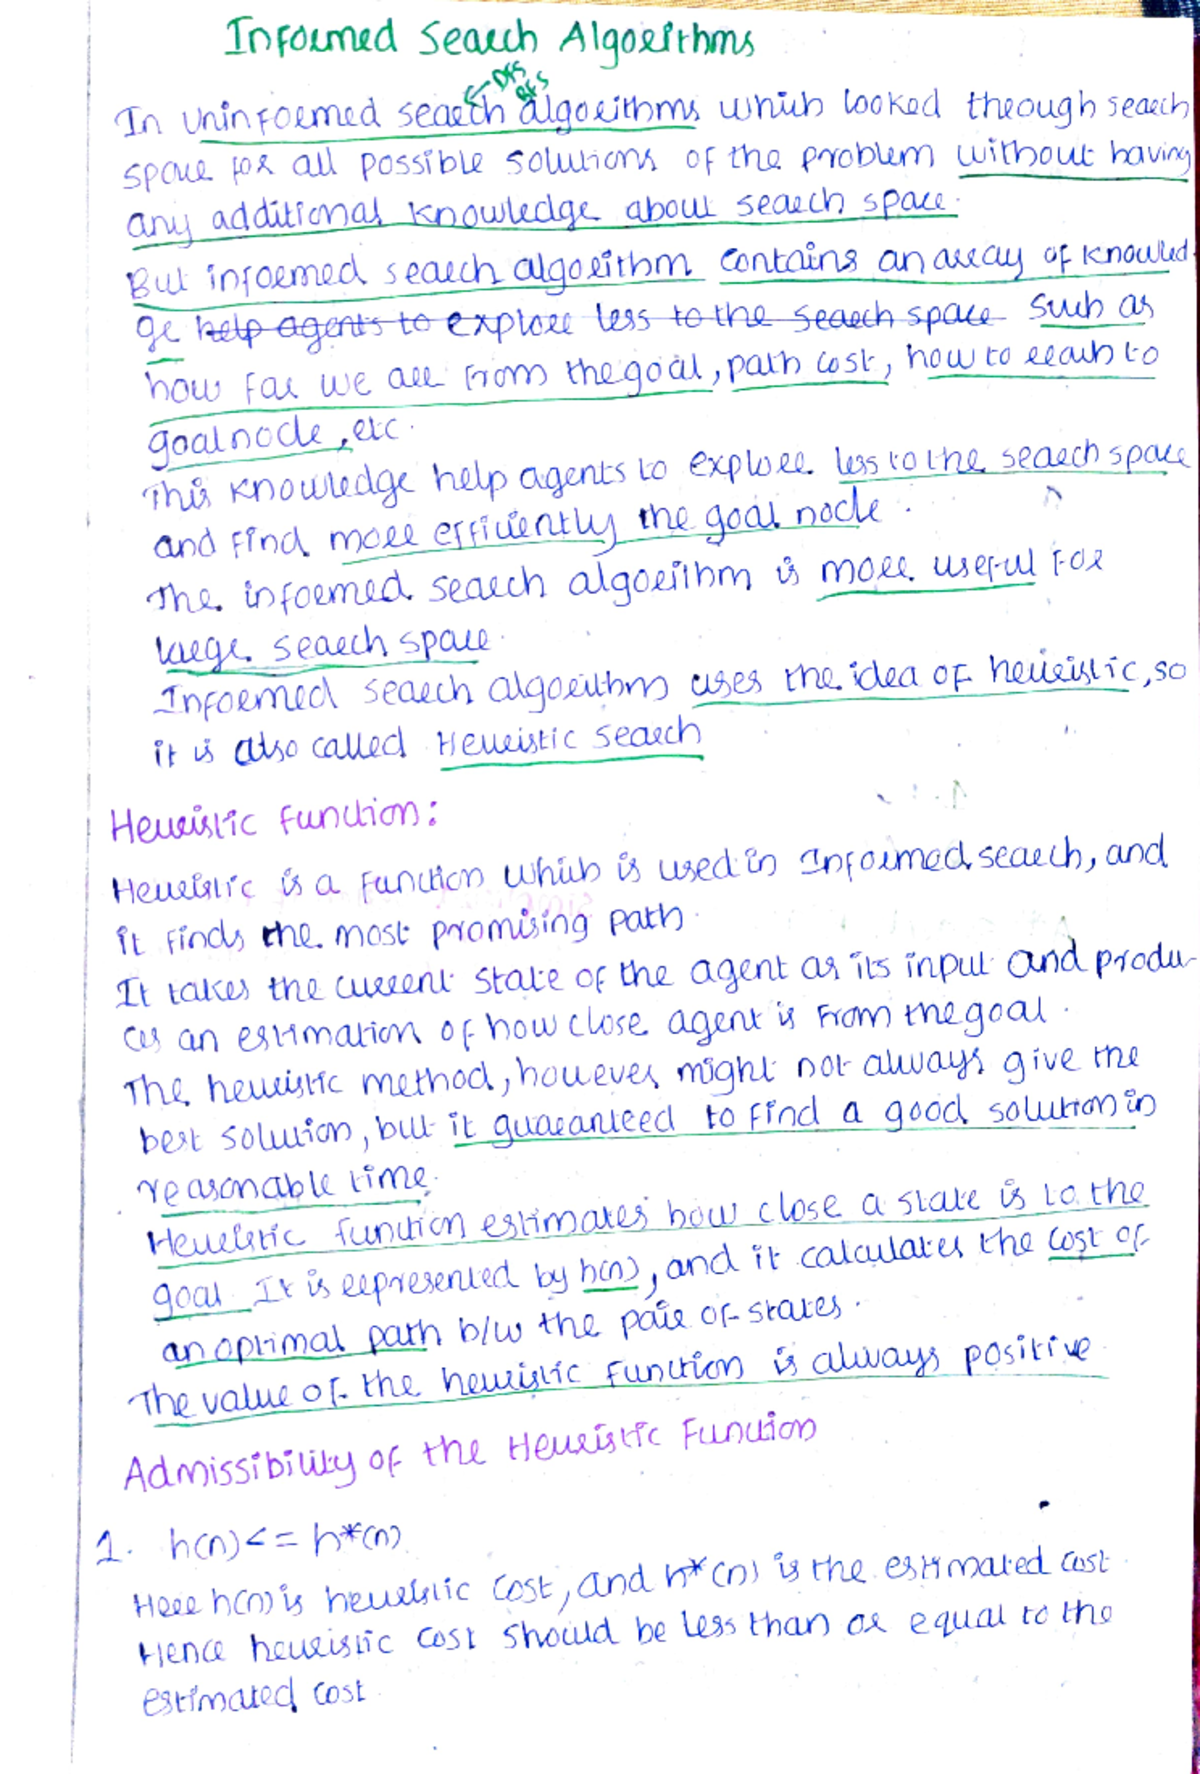 Informed Search Algorithms
DFS
BFS
In uninformed search algorithms which looked through search
space for all possible solutions of the problem without having
any additional knowledge about search space.
But informed search algorithm contains an array of knowled
ge help agents to explore less to the search space such as
how far we are from the goal, path cost, how to reach to
goal node, etc.
This knowledge help agents to explore less to the search space
and find more efficiently the goal node.
The informed search algorithm is more useful for
large search space.
Informed search algorithm uses the idea of heuristic, so
it is also called Heuristic search
Heuristic function:
Heuristic is a function which is used in Informed search, and
it finds the most promising path.
It takes the current state of the agent as its input and produ-
ces an estimation of how close agent is from the goal.
The heuristic method, however might not always give the
best solution, but it guaranteed to find a good solution in
reasonable time.
Heuristic function estimates how close a state is to the
goal. It is represented by h(n), and it calculates the cost of
an optimal path b/w the pair of states.
The value of the heuristic function is always positive
Admissibility of the Heuristic Function
1. h(n) <= h*(n)
Here h(n) is heuristic cost, and h*(n) is the estimated cost
Hence heuristic cost should be less than or equal to the
estimated cost.